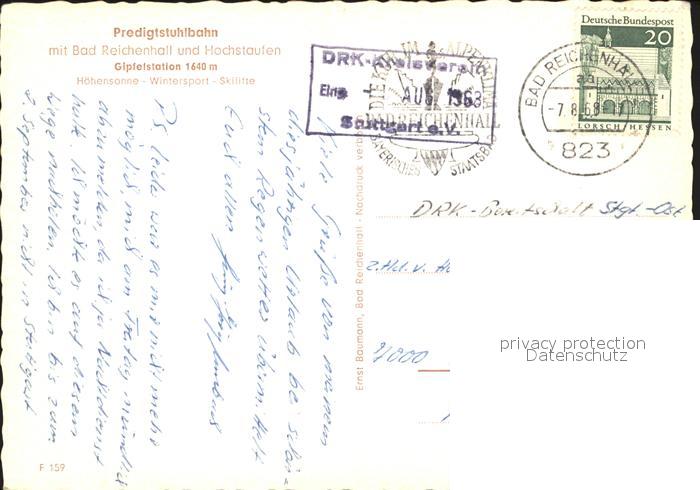 Predigtstuhlbahn
mit Bad Reichenhall und Hochstaufen
Gipfelstation 1640 m
Höhensonne - Wintersport - Skilifte
DRK-Kreisverein
Eing. AUG. 1968
Stuttgart e.V.
DIE KUR IM ALPENKLIMA
BAD REICHENHALL
BAYERISCHES STAATSBAD
Deutsche Bundespost
20
LORSCH/HESSEN
BAD REICHENHALL
aa
-7.8.68
823
DRK-Bereitschaft Stgt.-Ost
z.Hd.v.
7000
privacy protection
Datenschutz
Ernst Baumann, Bad Reichenhall - Nachdruck verboten
Viele Grüße von meinem
diesjährigen Urlaub bei
stem Regenwetter
Euch allen
PS leider war es mir nicht mehr
möglich, mich am Freitag mündlich
abzumelden, da ich ja Nachtdienst
hatte. Ich möchte es auf diesem
Wege nachholen. Ich bin bis zum
2. September nicht in Stuttgart
F 159